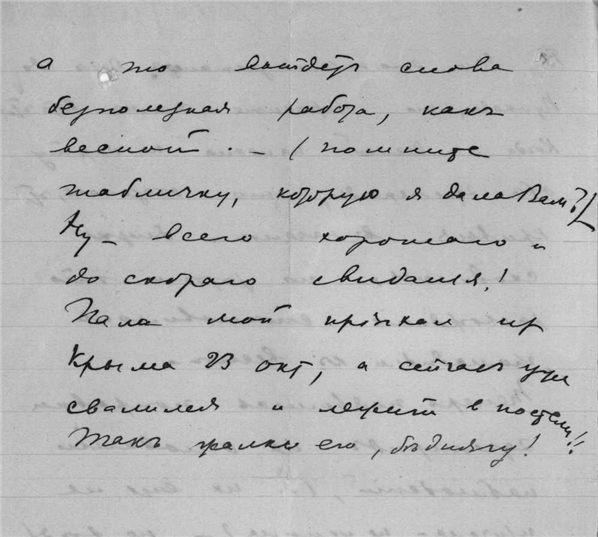 а то выйдетъ снова
безполезная работа, какъ
весной. — (помните
табличку, которую я дала Вам?)
Ну — всего хорошаго и
до скораго свиданья!
Папа мой пріѣхал из
Крыма 23 окт, а сейчасъ уже
свалился и лежит в постели!!
Такъ жалко его, бѣднягу!